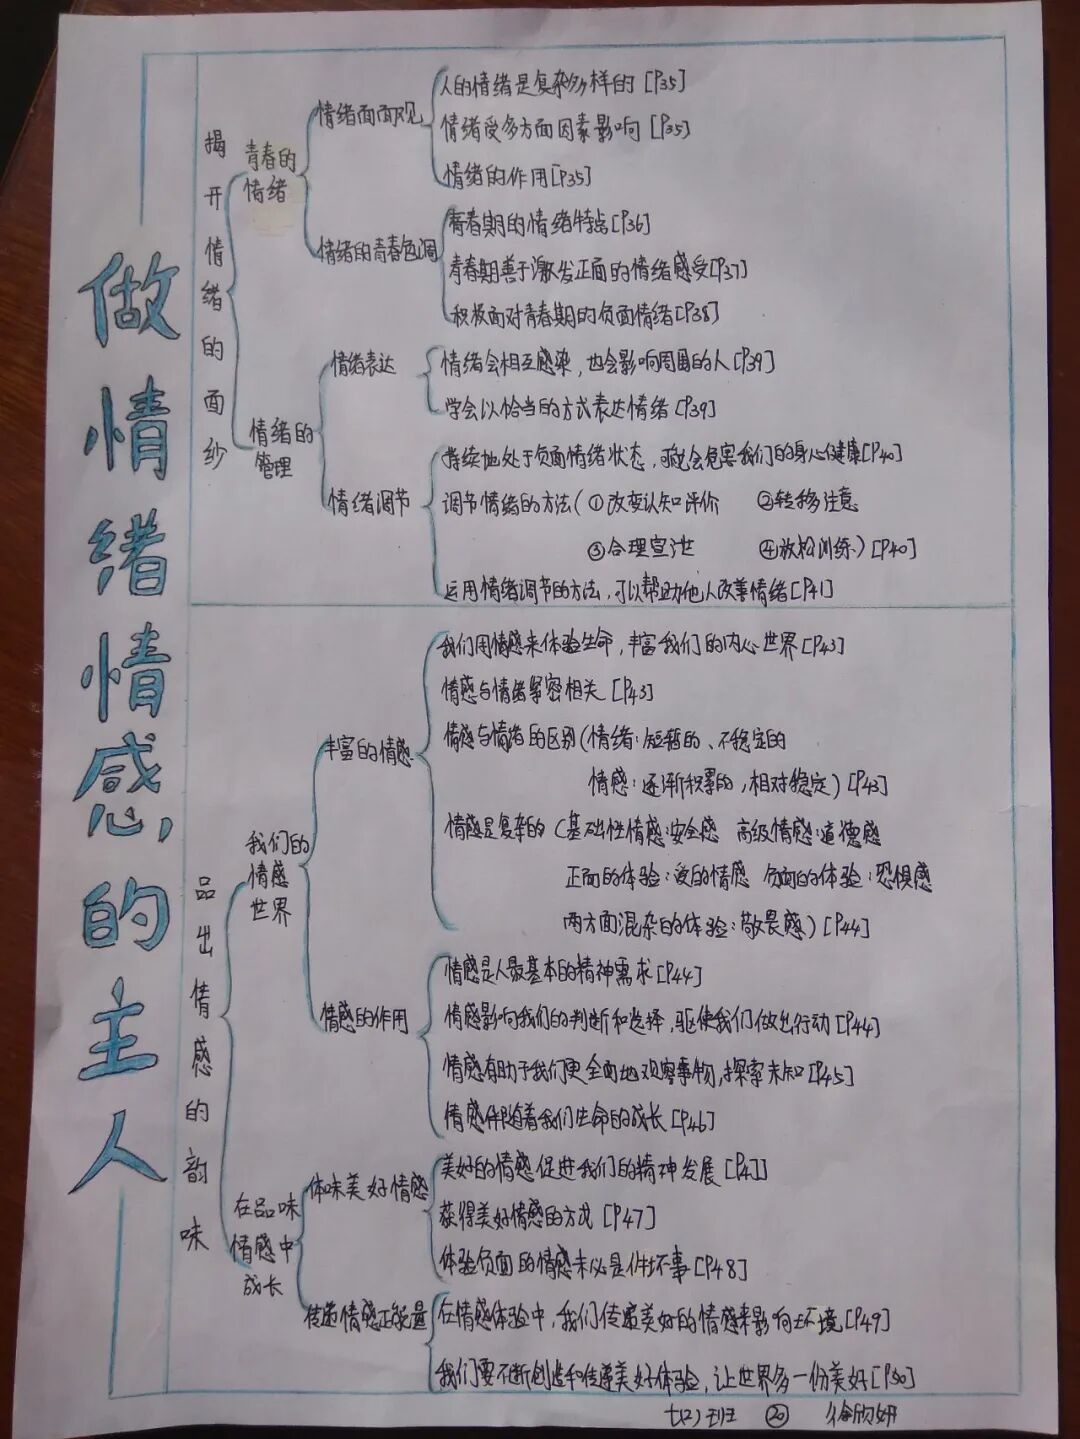 做情绪情感,的主人
揭开情绪的面纱
青春的
情绪
情绪面面观
人的情绪是复杂多样的[P35]
情绪受多方面因素影响[P35]
情绪的作用[P35]
情绪的青春色调
青春期的情绪特点[P36]
青春期善于激发正面的情绪感受[P37]
积极面对青春期的负面情绪[P38]
情绪的
管理
情绪表达
情绪会相互感染,也会影响周围的人[P39]
学会以恰当的方式表达情绪[P39]
情绪调节
持续地处于负面情绪状态,可能会危害我们的身心健康[P40]
调节情绪的方法(①改变认知评价 ②转移注意
③合理宣泄 ④放松训练)[P40]
运用情绪调节的方法,可以帮助他人改善情绪[P41]
品出情感的韵味
我们的
情感
世界
丰富的情感
我们用情感来体验生命,丰富我们的内心世界[P43]
情感与情绪紧密相关[P43]
情感与情绪的区别(情绪:短暂的、不稳定的
情感:逐渐积累的,相对稳定)[P43]
情感是复杂的(基础性情感:安全感 高级情感:道德感
正面的体验:爱的情感 负面的体验:恐惧感
两方面混杂的体验:敬畏感)[P44]
情感的作用
情感是人最基本的精神需求[P44]
情感影响我们的判断和选择,驱使我们做出行动[P44]
情感有助于我们更全面地观察事物,探索未知[P45]
情感伴随着我们生命的成长[P46]
在品味
情感中
成长
体味美好情感
美好的情感促进我们的精神发展[P47]
获得美好情感的方式[P47]
体验负面的情感未必是件坏事[P48]
传递情感正能量
在情感体验中,我们传递美好的情感来影响环境[P49]
我们要不断创造和传递美好体验,让世界多一份美好[P50]
七(2)班 ⑳ 徐欣妍